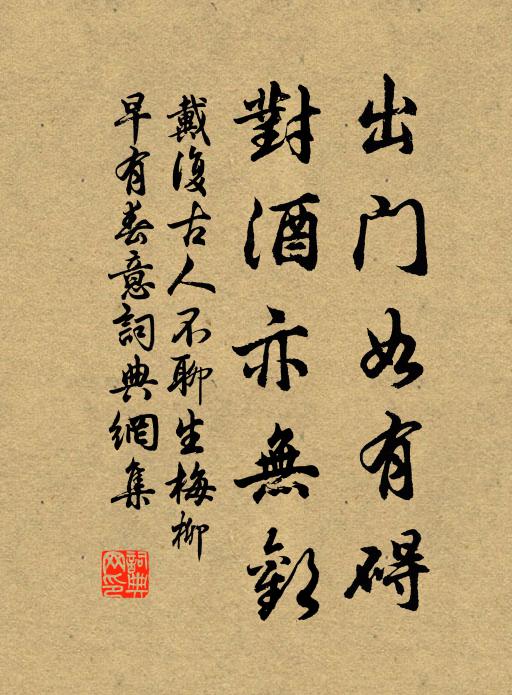 出門如有碍
對酒亦無歡
戴復古人不聊生梅柳
早有春意詞典網集
詞典
网印